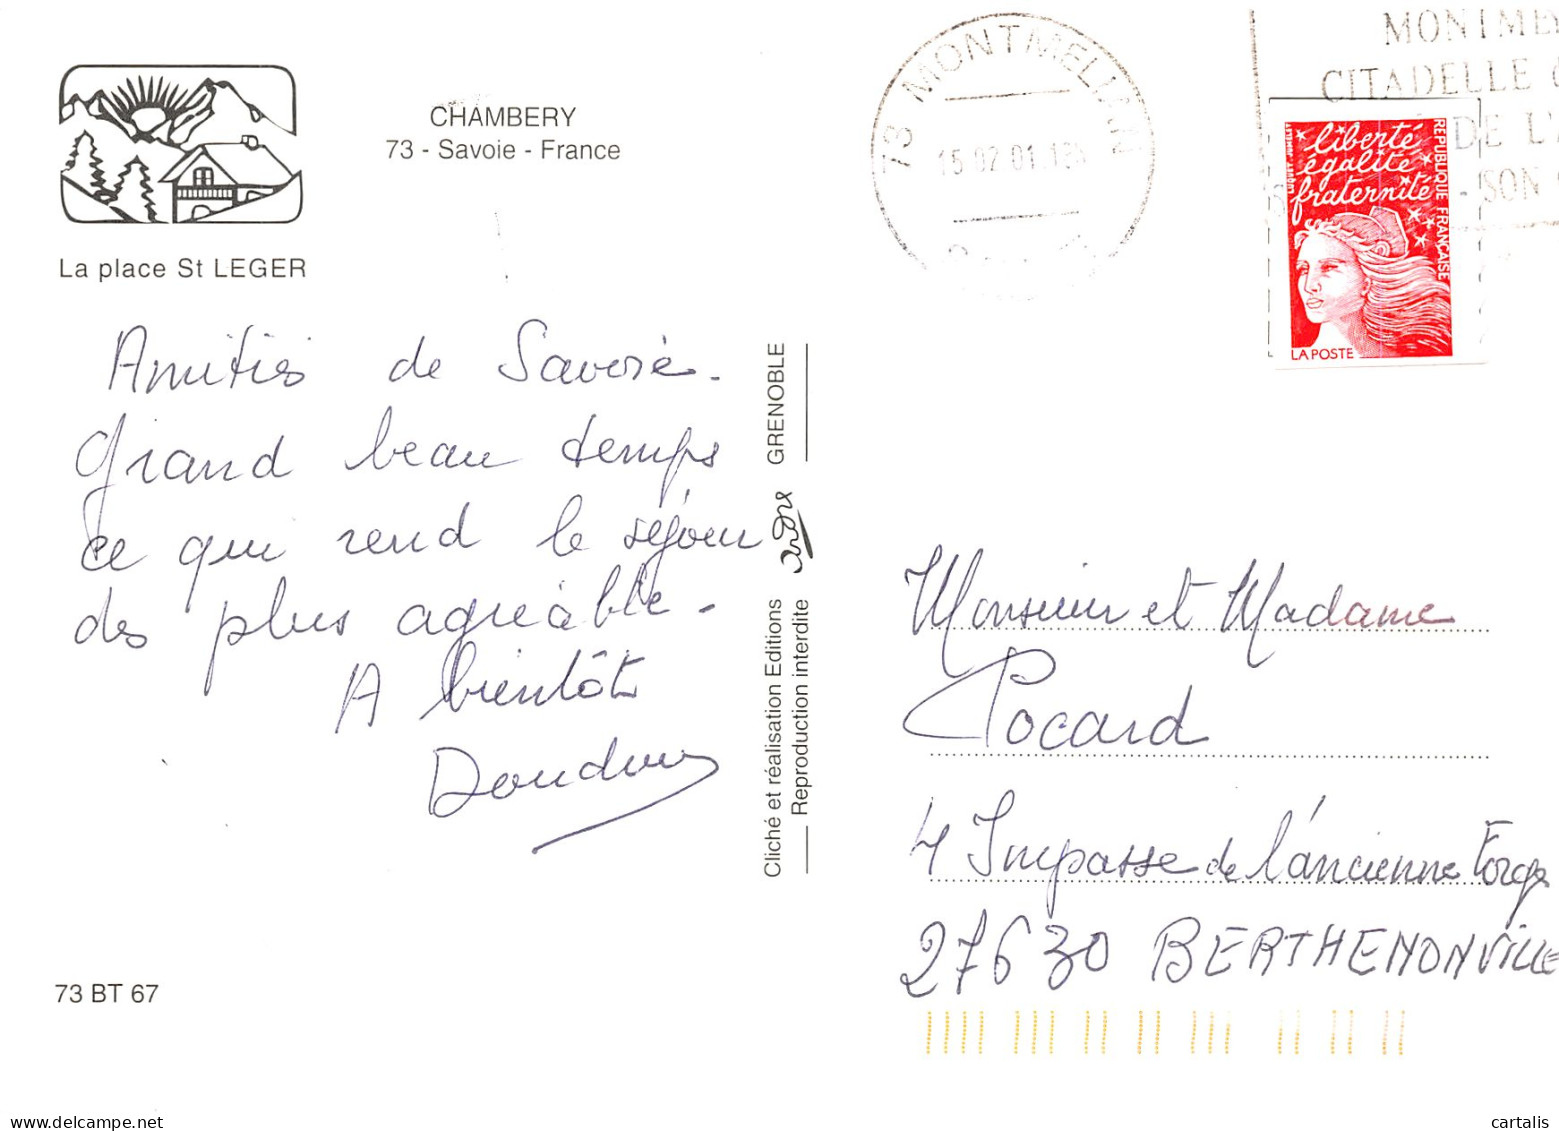 CHAMBERY
73 - Savoie - France
La place St LEGER
Amitiés de Savoie.
Grand beau temps
ce qui rend le séjour
des plus agréable.
A bientôt
73 BT 67
Cliché et réalisation Editions André GRENOBLE
Reproduction interdite
73 MONTMELIAN
15.02.01
MONTME
CITADELLE
DE L'
- SON
liberté
égalité
fraternité
REPUBLIQUE FRANÇAISE
LA POSTE
Monsieur et Madame
Pocard
4 Impasse de l'ancienne Forge
27630 BERTHENONVILLE
www.delcampe.net
cartalis